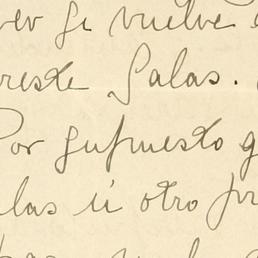 ver si vuelve
reste Salas.
Por supuesto q
las ú otro pr